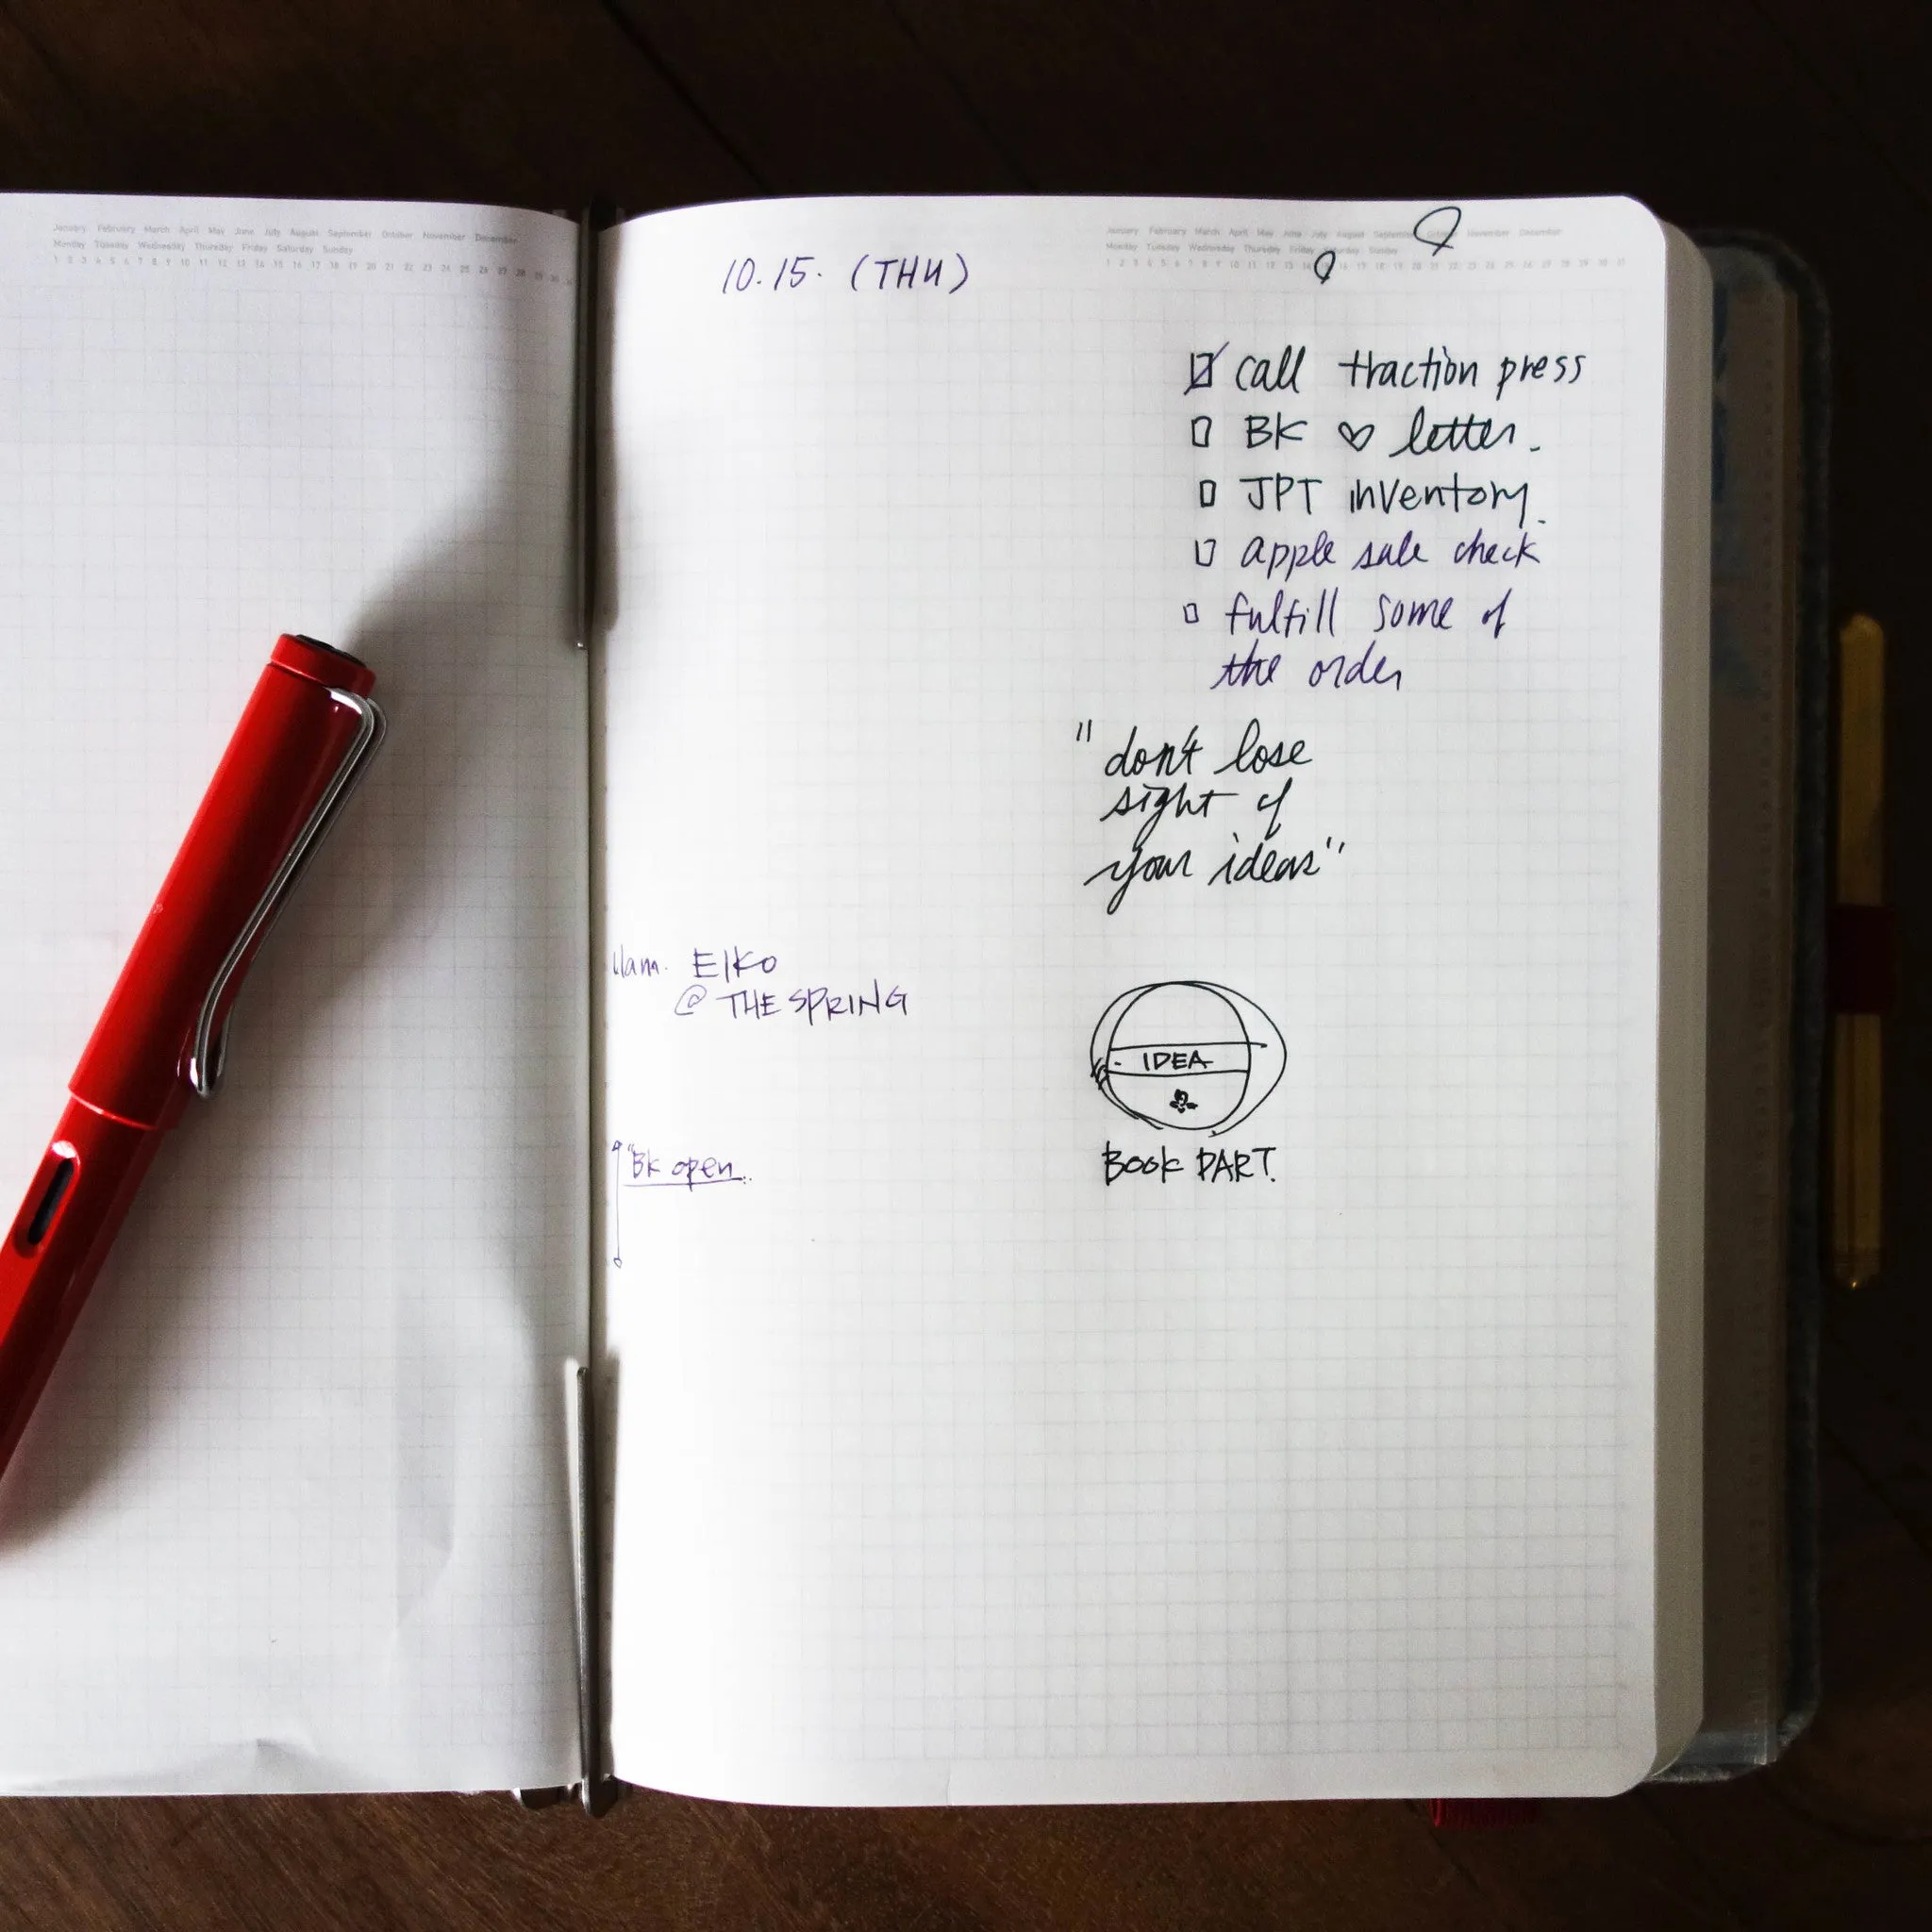 January February March April May June July August September October November December
Monday Tuesday Wednesday Thursday Friday Saturday Sunday
1 2 3 4 5 6 7 8 9 10 11 12 13 14 15 16 17 18 19 20 21 22 23 24 25 26 27 28 29 30
January February March April May June July August September October November December
Monday Tuesday Wednesday Thursday Friday Saturday Sunday
1 2 3 4 5 6 7 8 9 10 11 12 13 14 16 17 18 19 20 21 22 23 24 25 26 27 28 29 30 31
10.15. (THU)
call traction press
BK ♡ letter.
JPT inventory.
apple sale check
fulfill some of
the order
"don't lose
sight of
your ideas"
11am. EIKO
@ THE SPRING
IDEA
BOOK PART.
"BK open